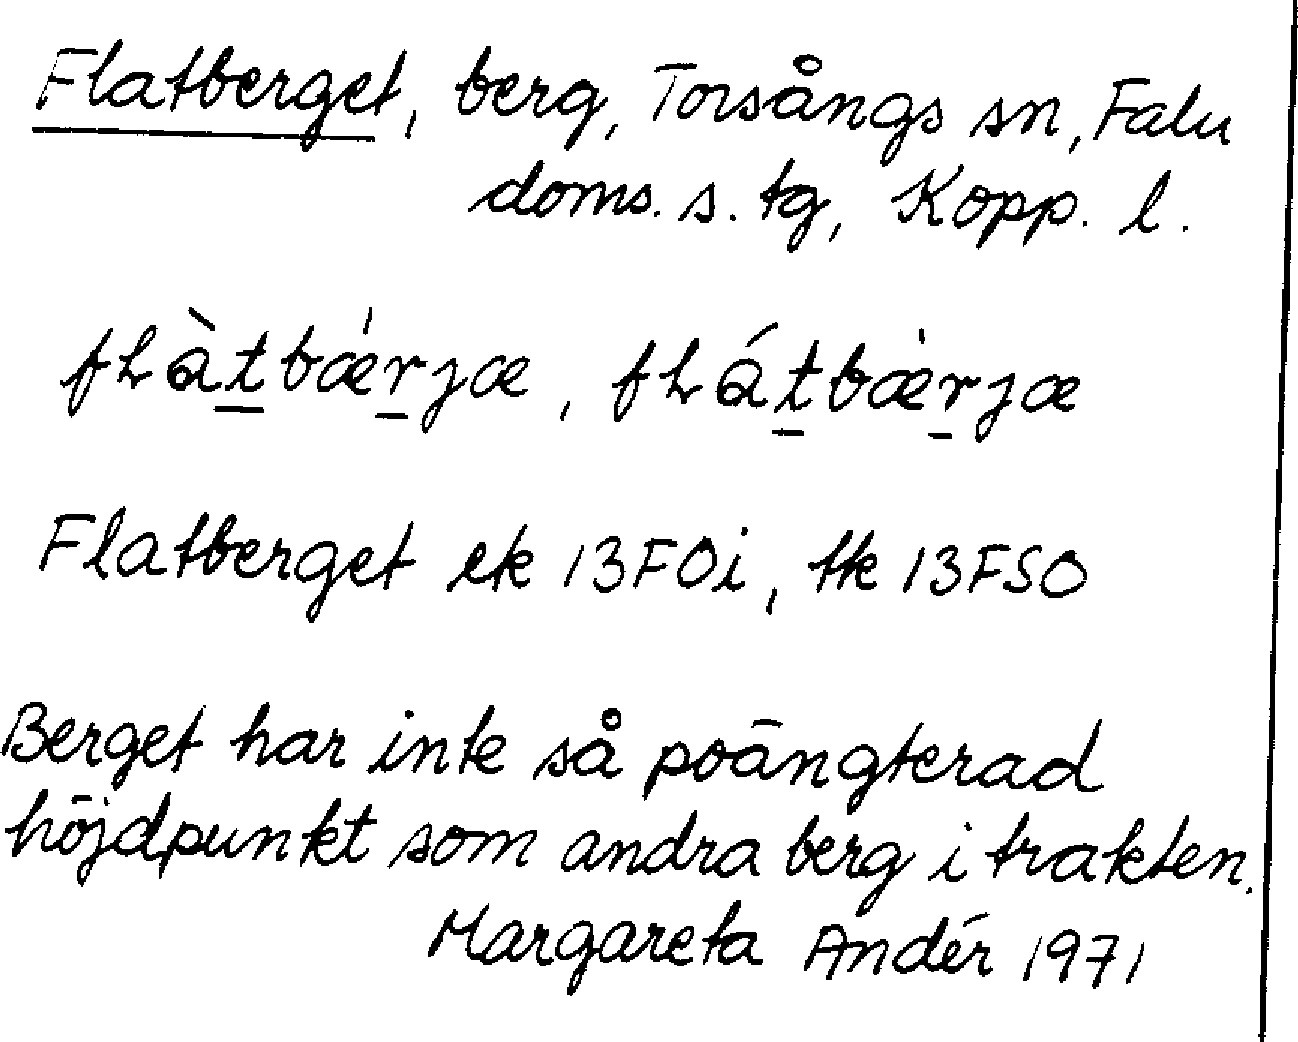 Flatberget, berg, Torsångs sn, Falu
doms. s. tg, Kopp. l.
fLàtbǽrjæ, fLátbæ̀rjæ
Flatberget ek 13F0i, tk 13FSO
Berget har inte så poängterad
höjdpunkt som andra berg i trakten.
Margareta Andér 1971